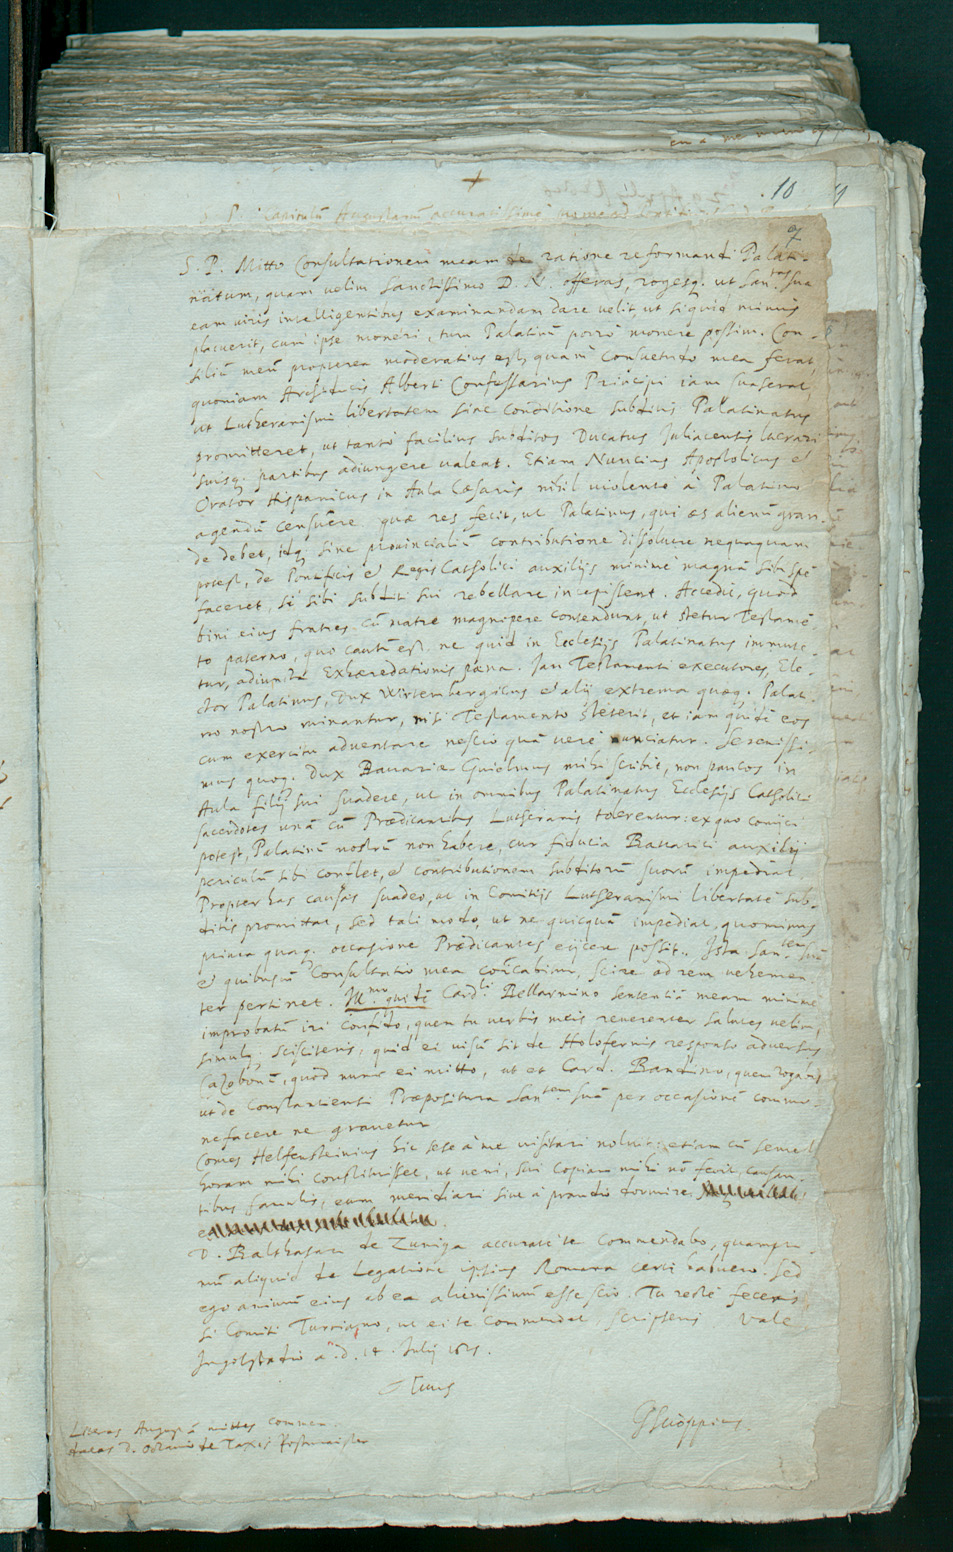 10
9
S. P. Mitto Consultationem meam de ratione reformandi Palati-
natum, quam velim Sanctissimo D. N. offeras, rogesq. ut San.tas sua
eam viris intelligentibus examinandam dare velit, ut siquid minus
placuerit, cum ipse moneri, tum Palatinū porro monere possim. Con-
siliū meū propterea moderatius est, quam consuetudo mea ferat,
quoniam Archiducis Alberti Confessarius Principi iam suaserat,
ut Lutheranismi libertatem sine conditione subditis Palatinatus
promitteret, ut tantò facilius subditos Ducatus Juliacensis lucrari
suisq. partibus adiungere valeat. Etiam Nuncius Apostolicus et
Orator Hispanicus in Aula Cæsaris nihil violentè à Palatino
agendū censuere quæ res fecit, ut Palatinus, qui æs alienū gran-
de debet, idq. sine provincialiū contributione dissolvere nequaquam
potest, de Pontificis et Regis Catholici auxilijs minimè magnā sibi spē
faceret, si sibi subditi sui rebellare incepissent. Accedit, quod
bini eius fratres cū matre magnopere contendunt, ut stetur Testamē-
to paterno, quo cautū est, ne quid in Ecclesijs Palatinatus immute-
tur, adiuncta Exhæredationis pœna. Jam Testamenti executores, Ele-
ctor Palatinus, Dux Wirtembergicus et alij extrema quæq. Palati-
no nostro minantur, nisi Testamento steterit, et iam quidē eos
cum exercitu adventare nescio quā verè nunciatur. Serenissi-
mus quoq. Dux Bavariæ Guielmus mihi scribit, non paucos in
Aula filij sui suadere, ut in omnibus Palatinatus Ecclesijs Catholici
sacerdotes unà cū Prædicantibus Lutheranis tolerentur: ex quo conijci
potest, Palatinū nostrū non habere, cur fiducia Bavarici auxilij
periculū sibi conflet, et contributionem subditorū suorū impediat.
Propter has causas suadeo, ut in Comitijs Lutheranismi libertatē sub-
ditis promittat, sed tali modo, ut ne quicquā impediat, quominus
prima quaq. occasione Prædicantes eijcere possit. Ista San.tem suā
et quibuscū Consultatio mea cōicabitur, scire ad rem vehemen-
ter pertinet. Ill.mo quidē Card.li Bellarmino sententiā meam minimè
improbatū iri confido, quem tu verbis meis reverenter salutes velim,
simulq. sciscitteris, quid ei visū sit de Holofernis responso adversus
Cazobonū, quod nunc ei mitto, ut et Card. Bandino, quem rogabis
ut de Constantiensi Præpositura San.tem suā per occasionē commo-
nefacere ne gravetur
Comes Helfensteinius hic sese à me visitari noluit: etiam cū semel
horam mihi constituisset, ut veni, sui copiam mihi nō fecit causan-
tibus famulis, eum meridiari sive à prandio dormire.
D. Balthasari de Zuniga accuratè te commendabo, quampri-
mū aliquid de Legatione ipsius Romana certi habuero. Sed
ego animū eius ab ea alienissimū esse scio. Tu rectè feceris
si Comiti Turriano, ut ei te commendet, scripseris. Vale
Ingolstadio a. d. 14. Julij 1615.
Tuus
GScioppius.
Literas Augustā mittes commen-
datas D. Octavio de Taxis Postmaister